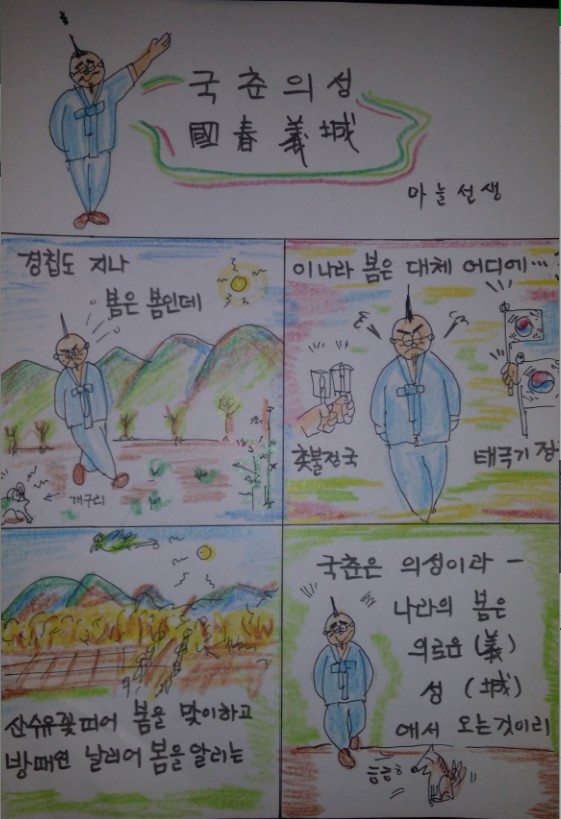 국춘의성
國春義城
마늘선생
경칩도 지나
봄은 봄인데
개구리
이나라 봄은 대체 어디에...
촛불정국
태극기 정
국춘은 의성이라 -
나라의 봄은
의로운 (義)
성 (城)
에서 오는것이리
산수유꽃 띠어 봄을 맞이하고
방패연 날리어 봄을 알리는